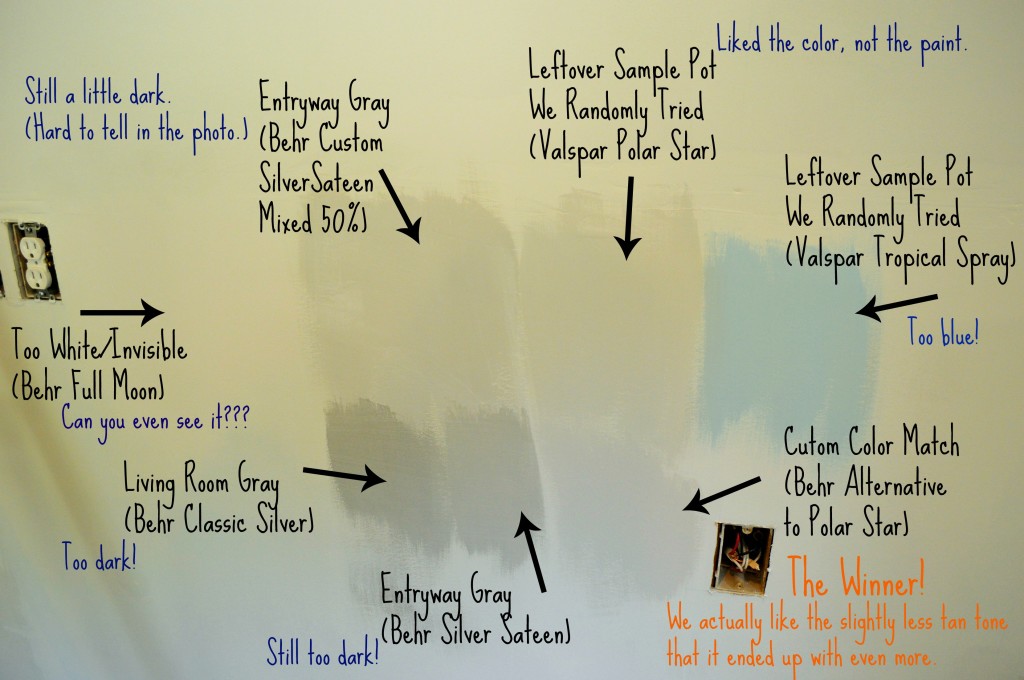 Liked the color, not the paint.
Leftover Sample Pot
We Randomly Tried
(Valspar Polar Star)
Still a little dark.
(Hard to tell in the photo.)
Entryway Gray
(Behr Custom
SilverSateen
Mixed 50%)
Leftover Sample Pot
We Randomly Tried
(Valspar Tropical Spray)
Too blue!
Too White/Invisible
(Behr Full Moon)
Can you even see it???
Living Room Gray
(Behr Classic Silver)
Too dark!
Entryway Gray
(Behr Silver Sateen)
Still too dark!
Cutom Color Match
(Behr Alternative
to Polar Star)
The Winner!
We actually like the slightly less tan tone
that it ended up with even more.